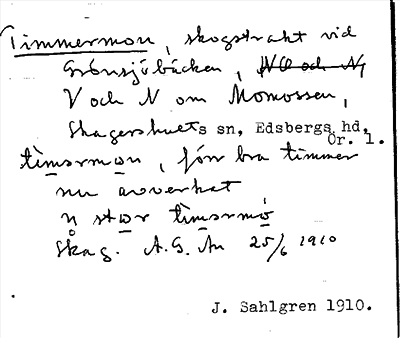 Timmermon, skogstrakt vid
Grönsjöbäcken, NO och N,
V och N om Momossen,
Skagershults sn, Edsbergs hd,
Ör. l.
tìmərmon, förr bra timmer
nu avverkat
n står tìmərmo
Skag. A.G. An 25/6 1910
J. Sahlgren 1910.